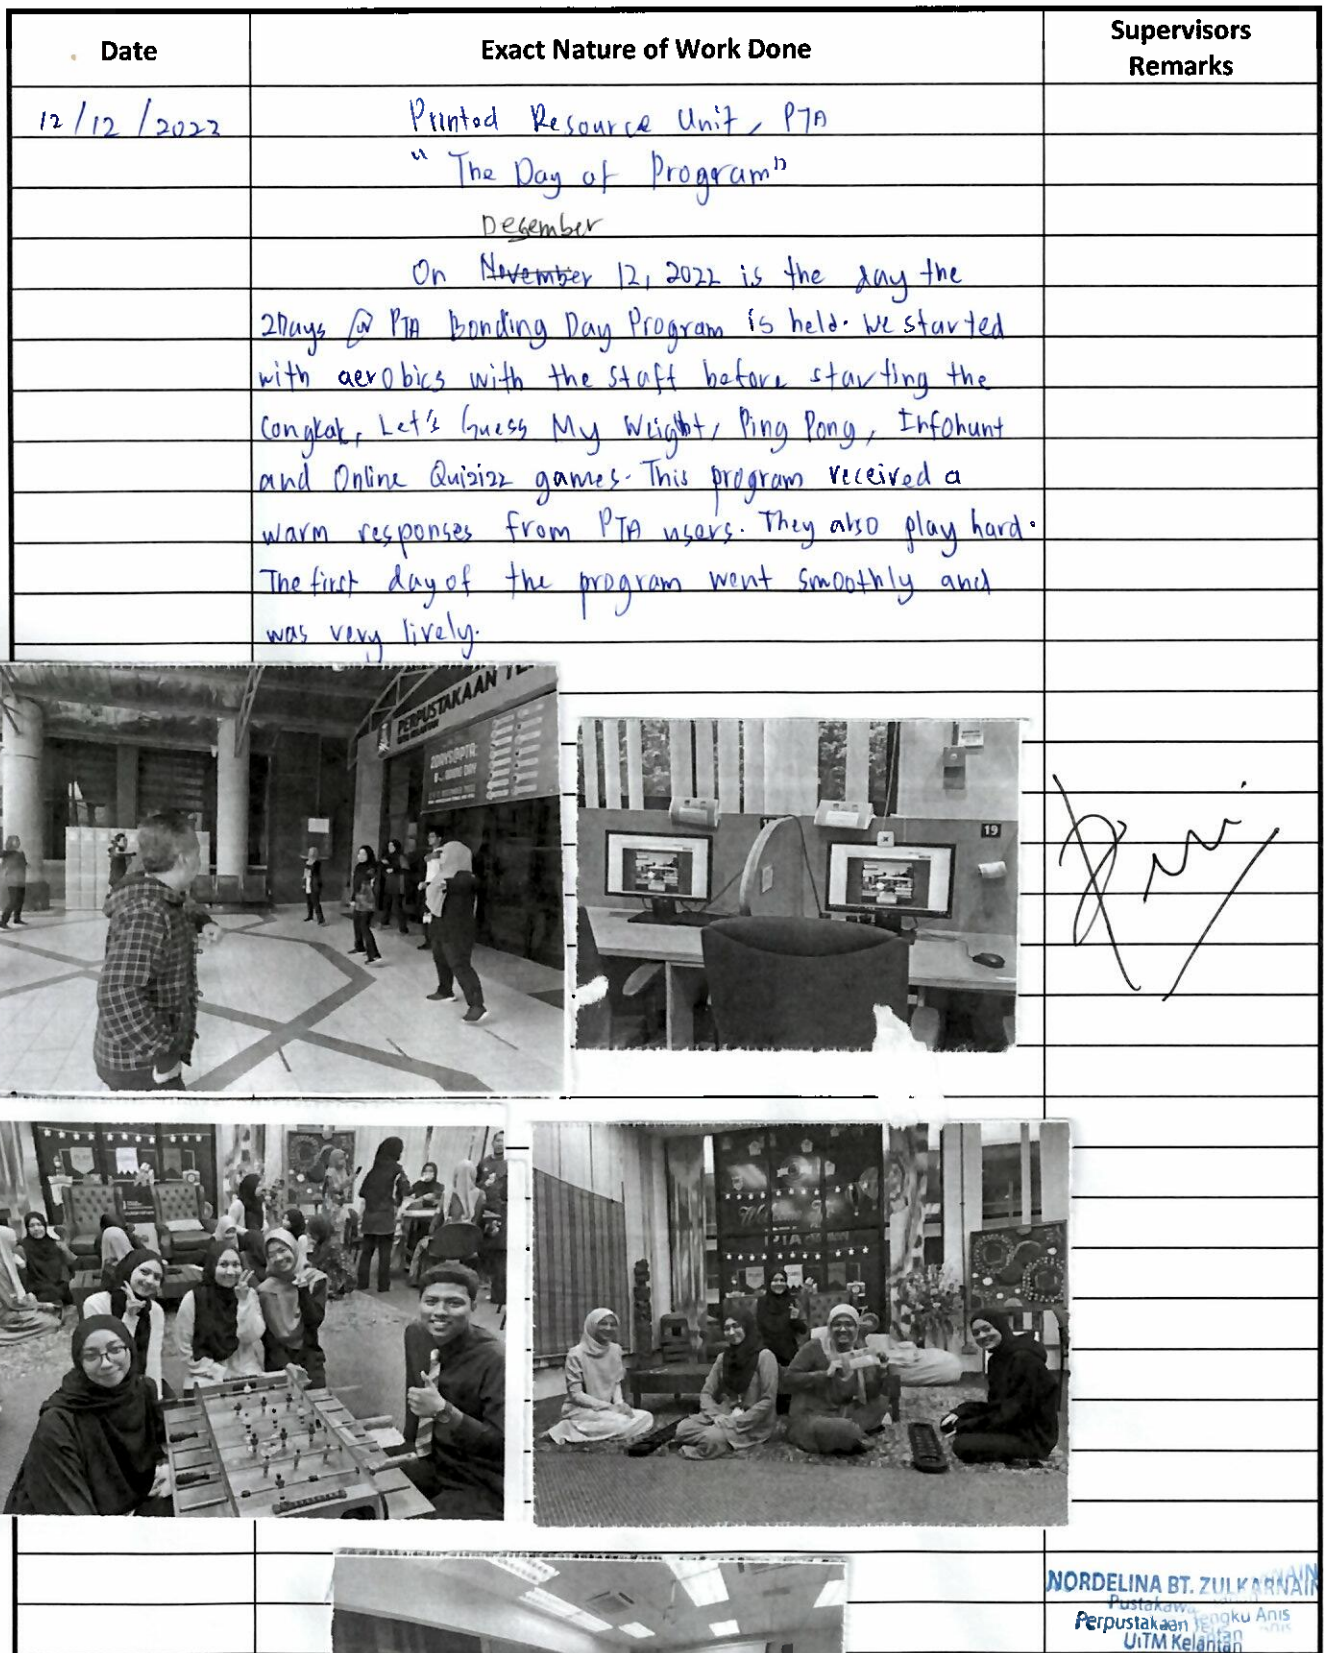 Date
Exact Nature of Work Done
Supervisors
Remarks
12/12/2022
Printed Resource Unit, PTA
"The Day of Program"
December
On November 12, 2022 is the day the
2Days @ PTA Bonding Day Program is held. We started
with aerobics with the staff before starting the
Congkak, Let's Guess My Weight, Ping Pong, Infohunt
and Online Quizizz games. This program received a
warm responses from PTA users. They also play hard.
The first day of the program went smoothly and
was very lively.
PERPUSTAKAAN
2DAYS@PTA:
19
PTA
NORDELINA BT. ZULKARNAIN
Perpustakaan Tengku Anis
UiTM Kelantan